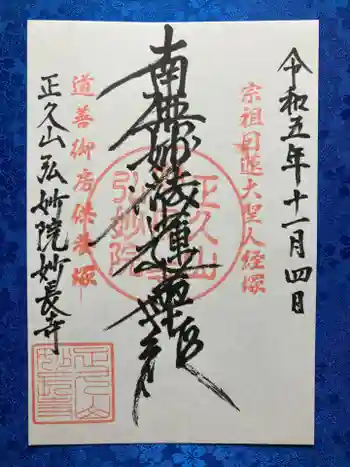 令和五年十一月四日
宗祖日蓮大聖人経塚
南無妙法蓮華経
正久山
弘妙院
道善御房供養塚
正久山弘妙院妙長寺